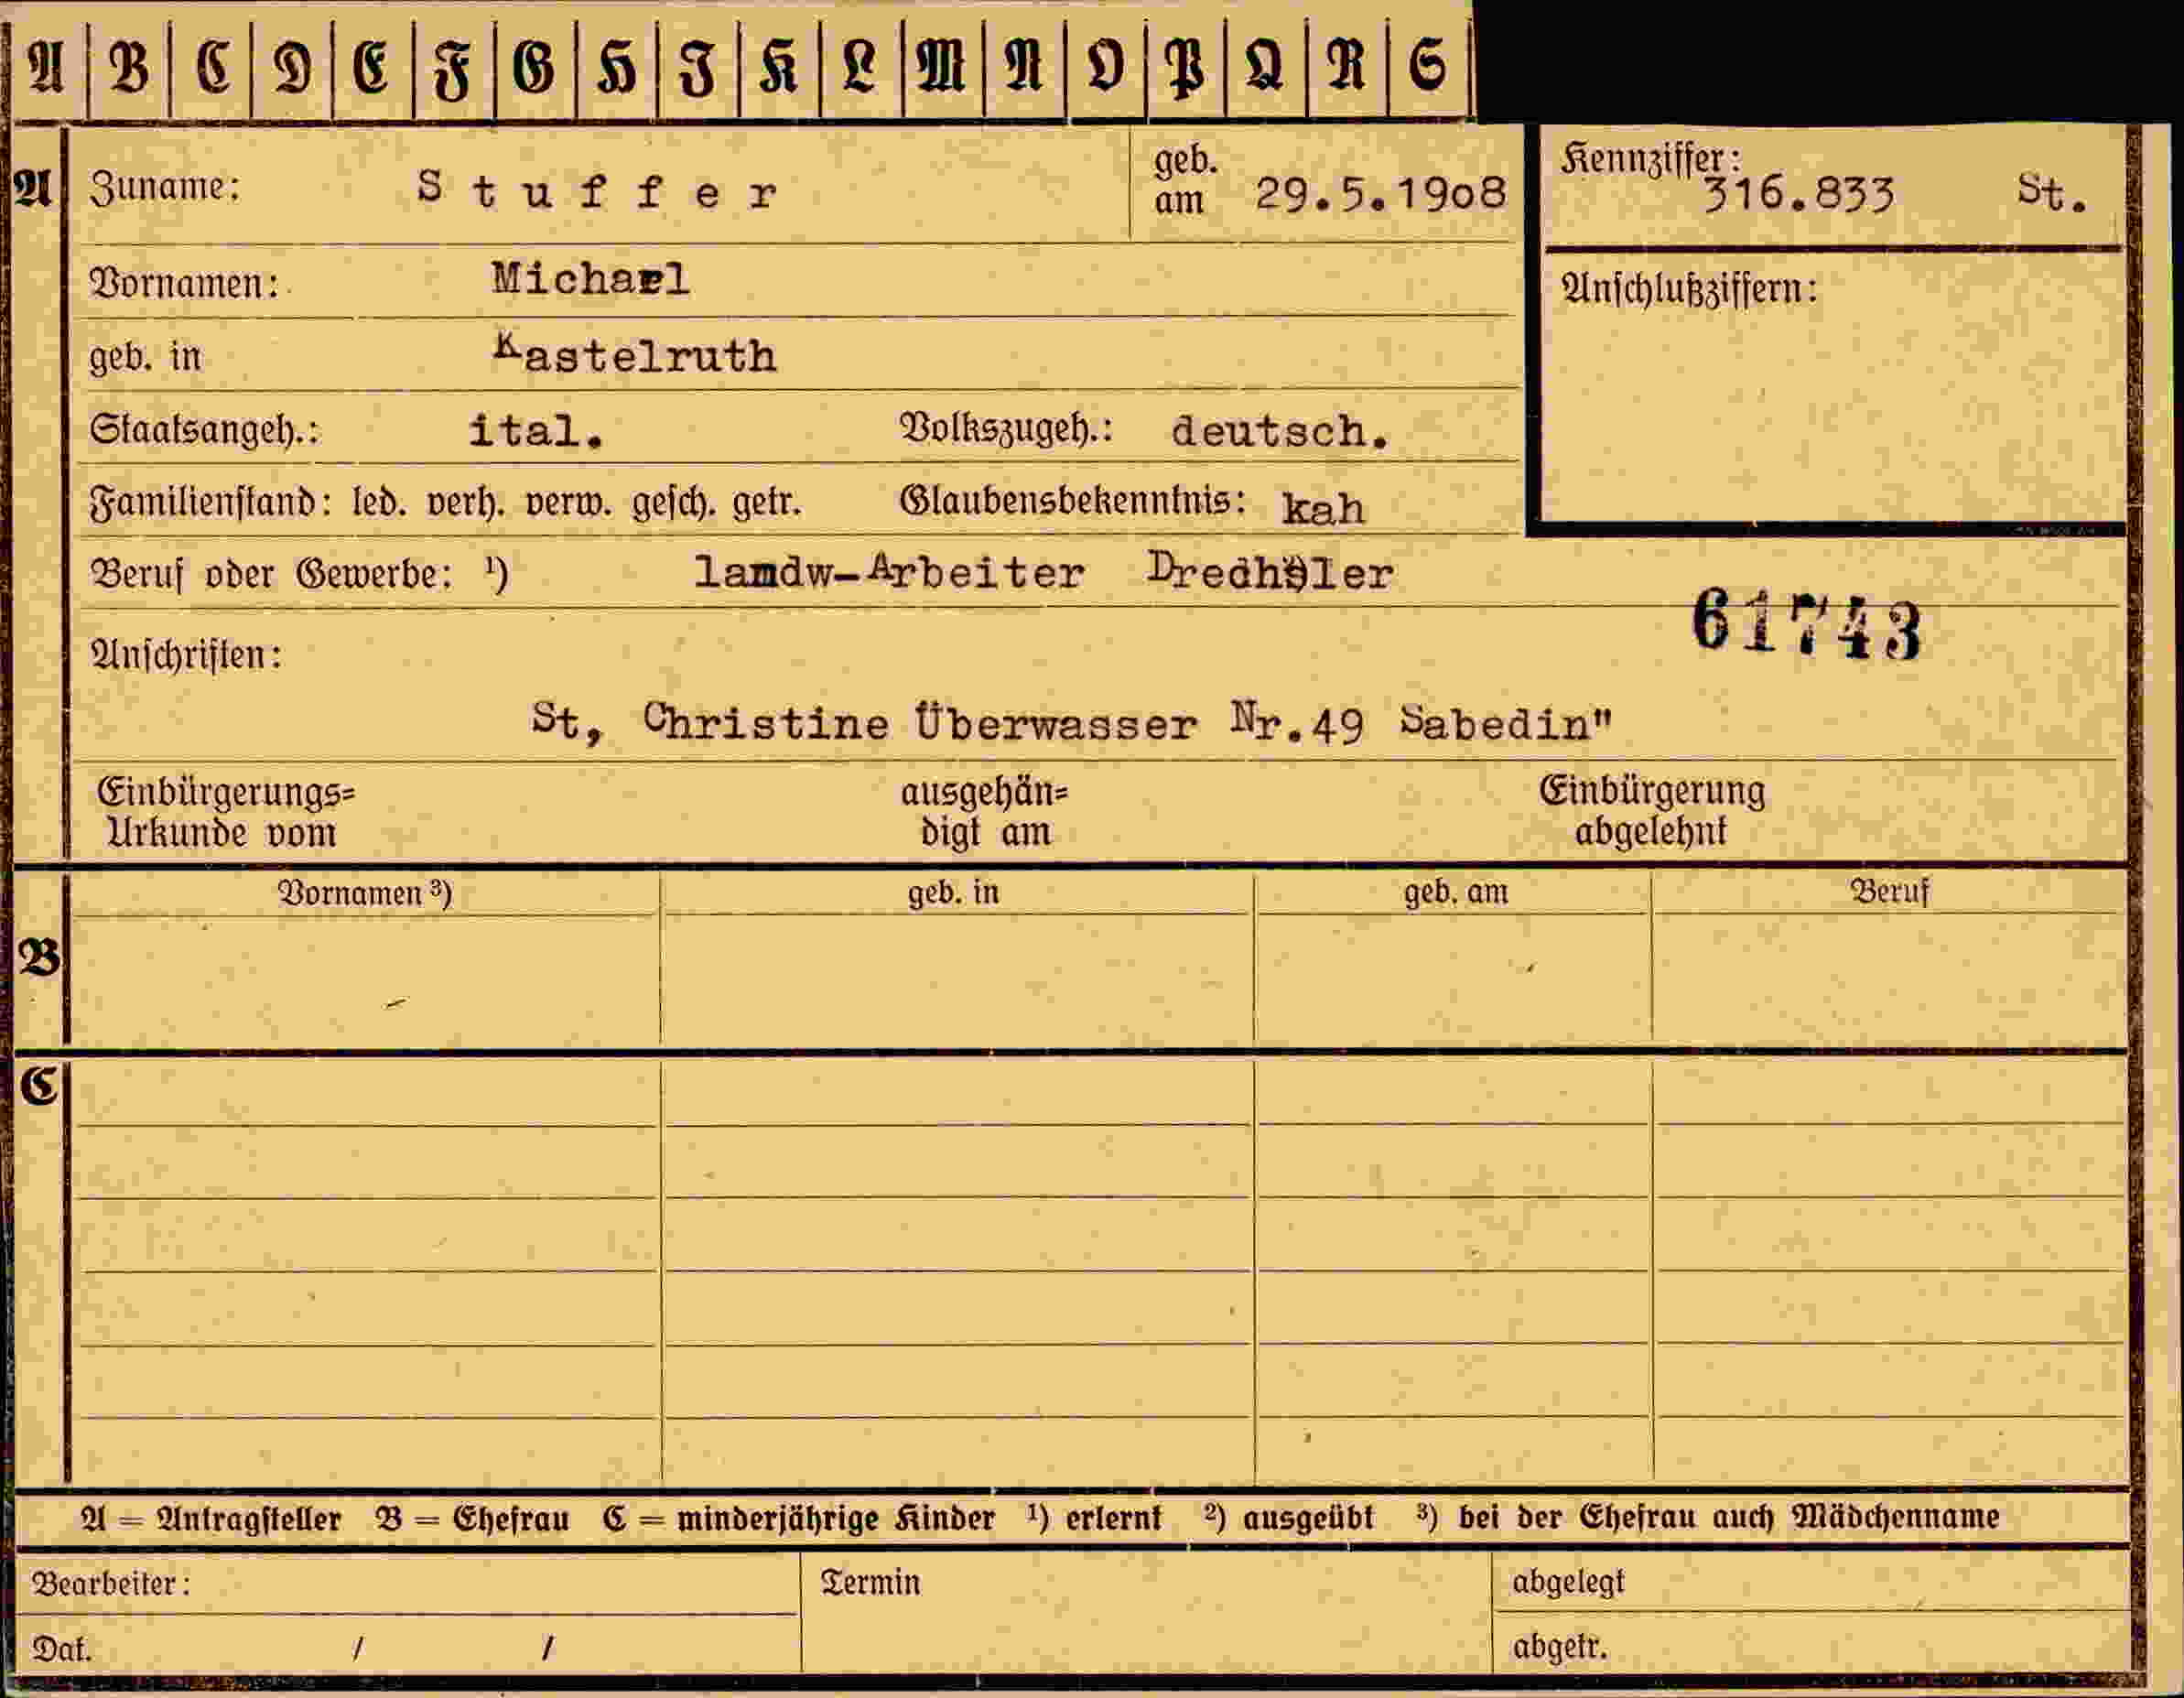 A B C D E F G H I K L M N O P Q R S
A Zuname: Stuffer geb. am 29.5.19o8 Kennziffer: 316.833 St.
Vornamen: Michael Anschlußziffern:
geb. in Kastelruth
Staatsangeh.: ital. Volkszugeh.: deutsch.
Familienstand: led. verh. verw. gesch. getr. Glaubensbekenntnis: kah
Beruf oder Gewerbe: ¹) landw-Arbeiter
61743
Anschriften:
St, Christine Überwasser Nr.49 Sabedin"
Einbürgerungs= Urkunde vom ausgehän= digt am Einbürgerung abgelehnt
Vornamen ³) geb. in geb. am Beruf
B
C
A = Antragsteller B = Ehefrau C = minderjährige Kinder ¹) erlernt ²) ausgeübt ³) bei der Ehefrau auch Mädchenname
Bearbeiter: Termin abgelegt
Dat. / / abgetr.